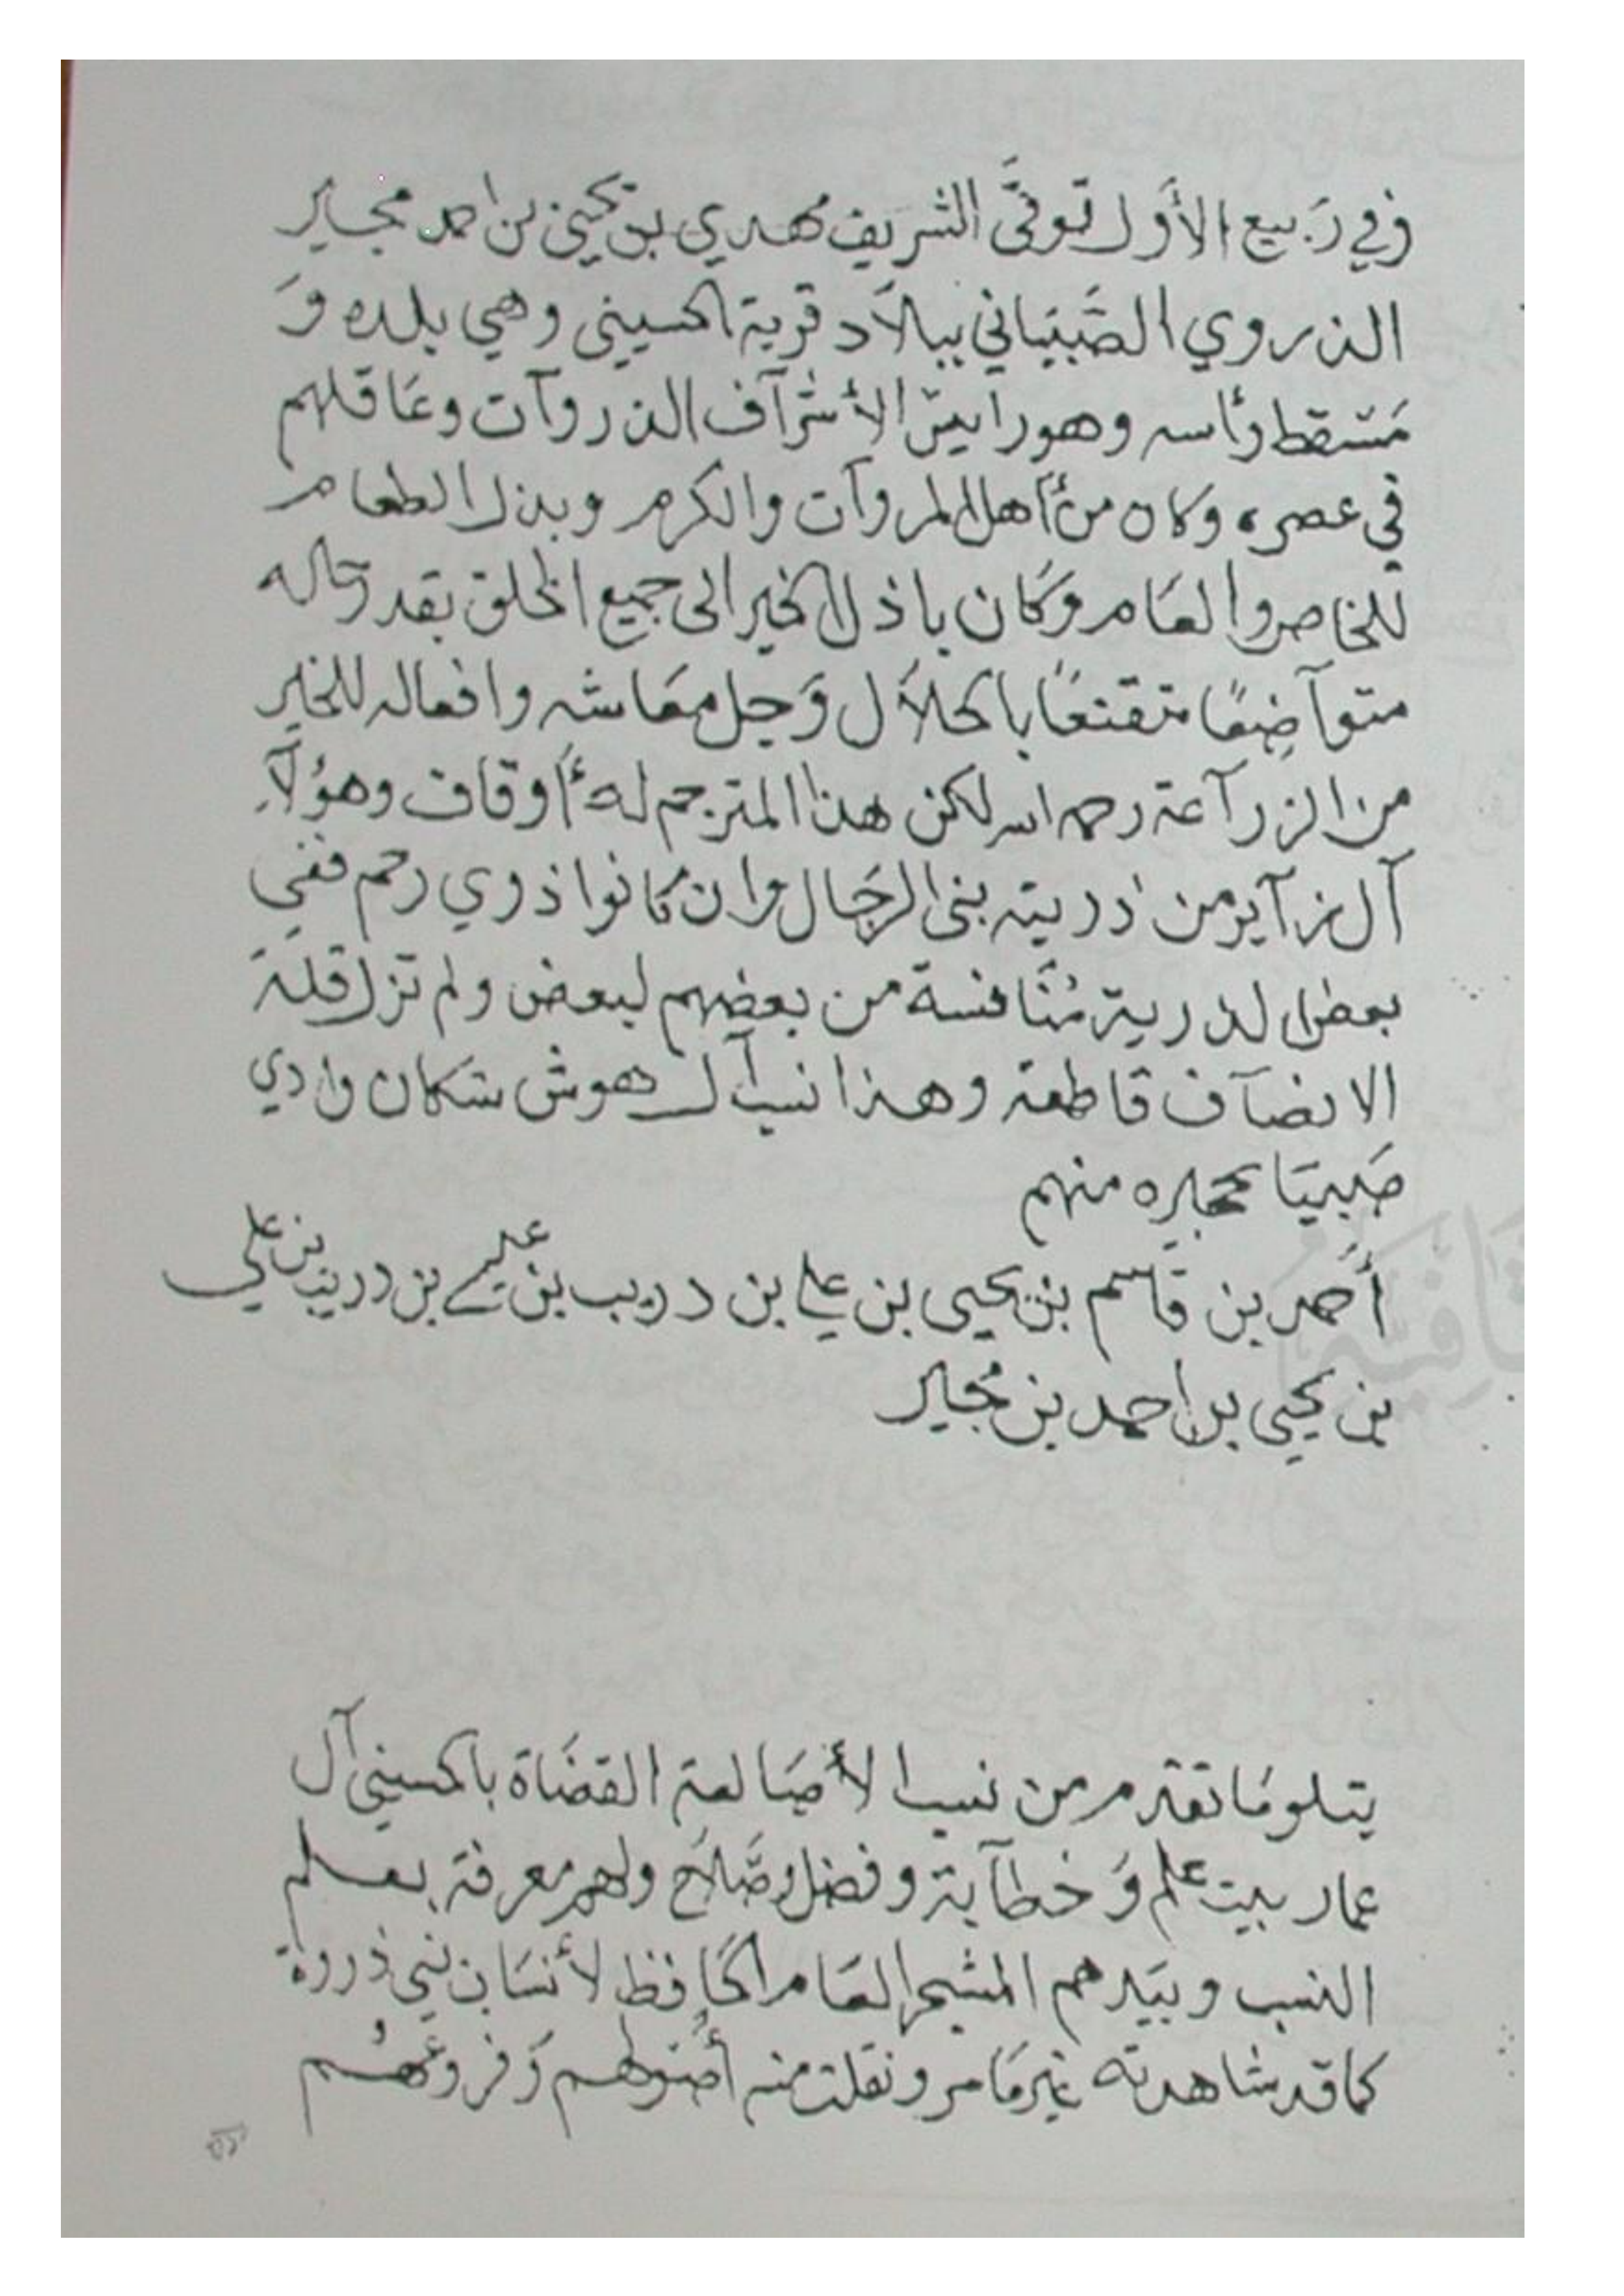 وفي رَبيع الأوَل توفىَّ الشريف مهدي بن يحيىٰ بن احمد مجـاير
الذروي الصَّبيَاني ببلاَد قرية الحسيني وهي بلده وَ
مَسقط رأسه وهو رايسَ الأشرآف الذروآت وعَاقلهم
في عصره وكان من أهل المروآت والكرم وبذل الطعام
للخاص والعَام وَكَان باذل الخير الى جميع الخلق بقدر حاله
متوآضِعًا متقنعًا بالحلاَل وَجل معَاشه وافعاله للخير
من الزرآعة رحمه الله لكن هذا المترجم لهُ أوقاف وهؤلآءِ
آل من ذريته بنى الرجَال وان كانوا ذوي رحم ففي
بعض الذرية مُنَافسة من بعضهم لبعض ولم تزل قلة
الانصآف قاطعة وهـذا نسب آل هوش سَكان وادي
صَبيَا مجايره منهم
أحمد بن قاسم بن يحيى بن علي بن دريب بن علي بن دريب بن علي
بن يحيى بن احمد بن مُجاير
يتلو مَا تقدم من نسب الأصَالعة القضَاة بالحسيني آل
عمار بيت علم وَخطآبة وفضل وصَّلاَح ولهم معرفة بعلم
النسب وبيَدهم المشجر العَام الحَافظ لأنسَاب بني ذروة
كما قد شاهدته غير مَا مر ونقلت منه أصُولهم وَفروعَهُم